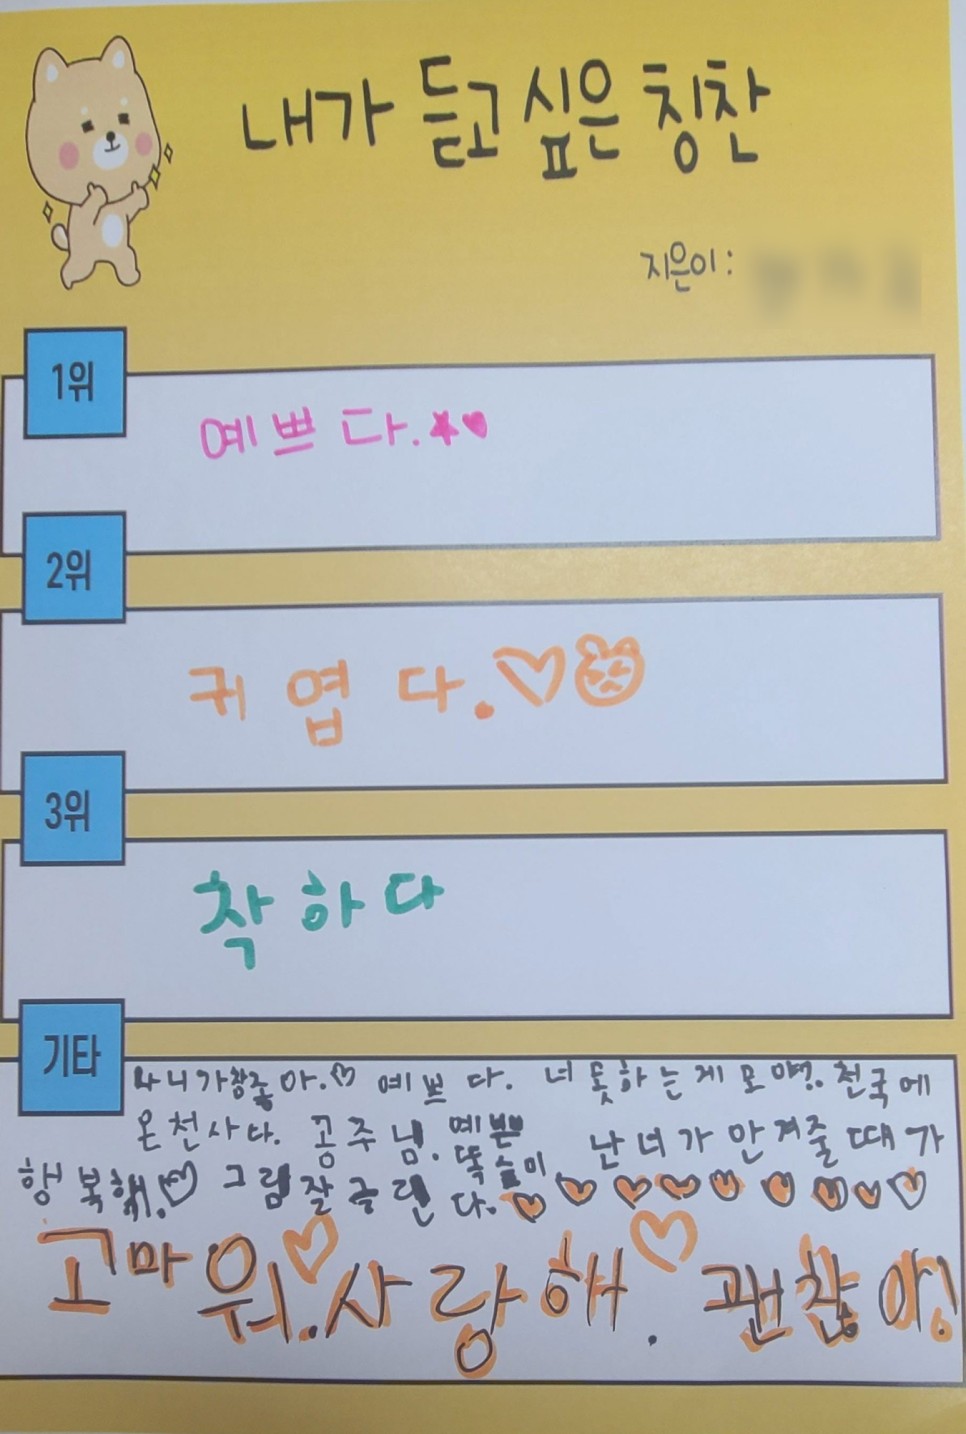 내가 듣고 싶은 칭찬
지은이:
1위
예쁘다.
2위
귀엽다.
3위
착하다
기타
니가 좋아. 예쁘다. 너 못하는게 모야. 천국에
온 천사다. 공주님. 예쁜 똑순이 난 너가 안겨줄 때가
행복해. 그림 잘 그린다.
고마워. 사랑해. 괜찮아!